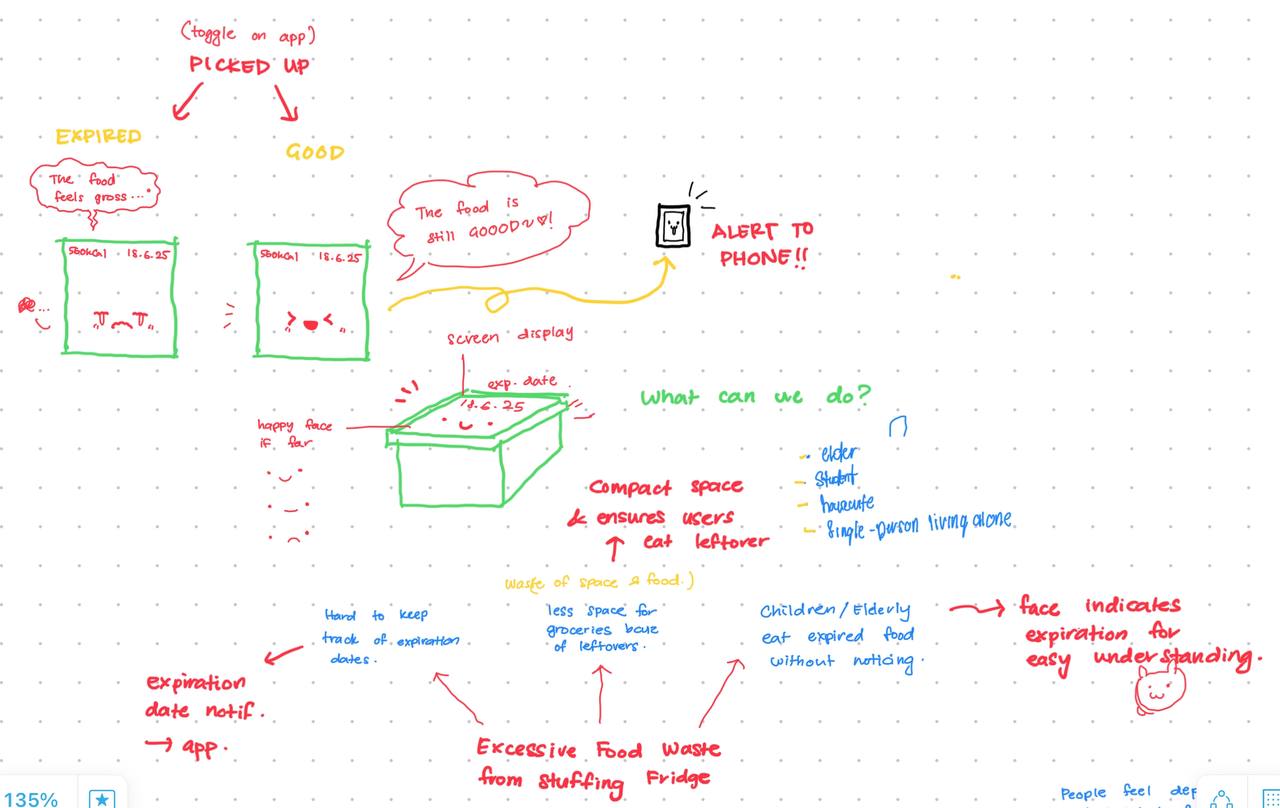 (toggle on app)
PICKED UP
EXPIRED
GOOD
The food
feels gross...
The food is
still GOOOD~♡!
18.6.25
18.6.25
ALERT TO
PHONE!!
screen display
exp. date
.6.25
happy face
if far
What can we do?
- elder
- Student
-
- Single-person living alone
Compact space
& ensures users
↑ eat leftover
waste of space & food.)
Hard to keep
track of expiration
dates.
less space for
groceries
of leftovers.
Children/Elderly
eat expired food
without noticing.
→ face indicates
expiration for
easy understanding.
expiration
date notif.
→ app.
Excessive Food Waste
from stuffing Fridge
People feel dep
135%